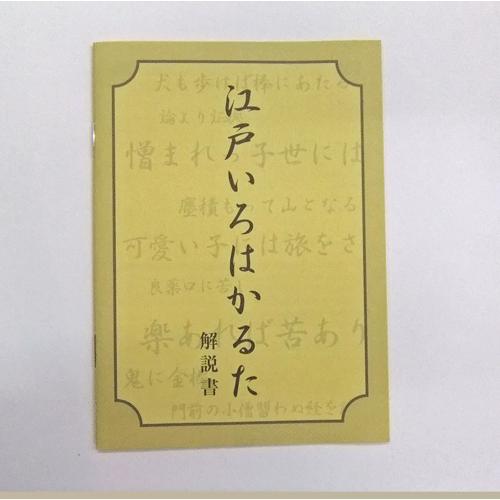 江戸いろはかるた
解説書
犬も歩けば棒にあたる
論より
憎まれっ子世には
塵積もって山となる
可愛い子には旅をさ
良薬口に苦
楽あれば苦あり
鬼に金棒
門前の小僧習わぬ経を